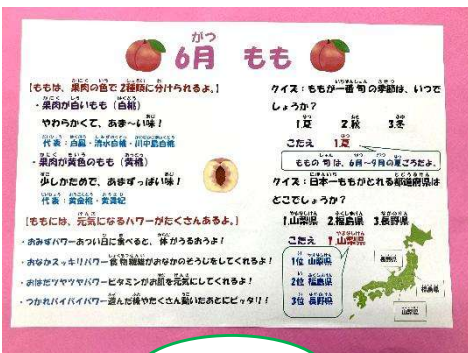 6月 もも
【ももは、果肉の色で2種類に分けられるよ。】
・果肉が白いもも（白桃）
やわらかくて、あま〜い味！
代表：白鳳・清水白桃・川中島白桃
・果肉が黄色のもも（黄桃）
少しかためで、あまずっぱい味！
代表：黄金桃・黄貴妃
【ももには、元気になるパワーがたくさんあるよ。】
・おみずパワーあつい日に食べると、体がうるおうよ！
・おなかスッキリパワー食物繊維がおなかのそうじをしてくれるよ！
・おはだツヤツヤパワービタミンがお肌を元気にしてくれるよ！
・つかれバイバイパワー遊んだ後やたくさん動いたあとにピッタリ！
クイズ：ももが一番旬の季節は、いつで
しょうか？
1.夏 2.秋 3.冬
こたえ 1.夏
ももの旬は、6月〜9月の夏ごろだよ。
クイズ：日本一ももがとれる都道府県は
どこでしょうか？
1.山梨県 2.福島県 3.長野県
こたえ 1.山梨県
1位 山梨県
2位 福島県
3位 長野県
長野県
福島県
山梨県